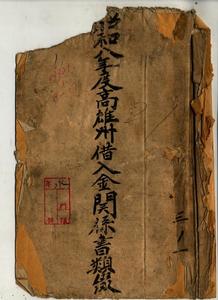 昭和八年度高雄州借入金関係書類綴
三ノ一
永